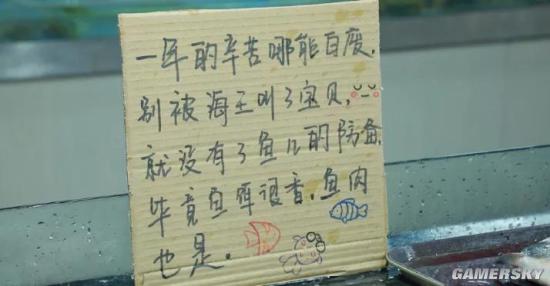 一年的辛苦哪能白废，
别被海王叫了宝贝，
就没有了鱼儿的防备，
毕竟鱼饵很香，鱼肉
也是。
GAMERSKY